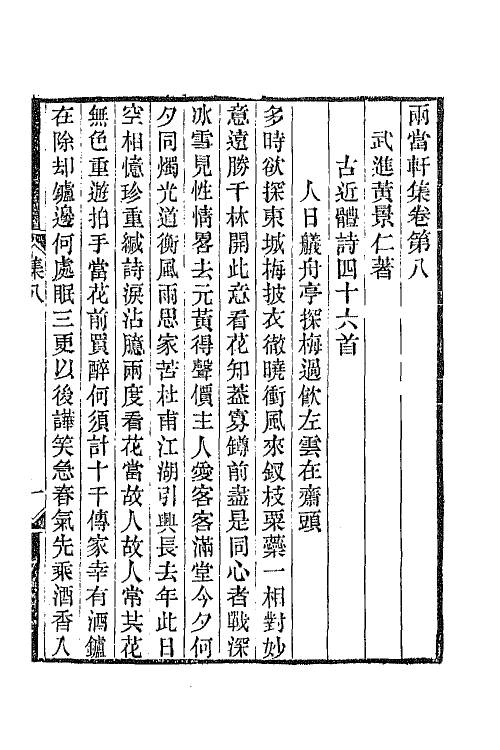 兩當軒集卷第八
武進黃景仁著
古近體詩四十六首
人日艤舟亭探梅過飮左雲在齋頭
多時欲探東城梅披衣微曉衝風來釵枝粟蘂一相對妙
意遠勝千林開此意看花知蓋寡鐏前盡是同心者戰深
冰雪見性情畧去元黃得聲價主人愛客客滿堂今夕何
夕同燭光道衡風雨思家苦杜甫江湖引興長去年此日
空相憶珍重緘詩淚沾臆兩度看花當故人故人常共花
無色重遊拍手當花前買醉何須計十千傳家幸有酒鑪
在除却鑪邊何處眠三更以後譁笑急春氣先乘酒香入
集八
一